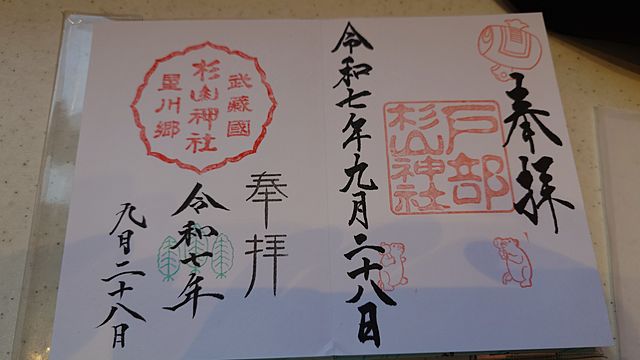 奉拝
戸部
杉山神社
令和七年九月二十八日
武蔵國
杉山神社
星川郷
奉拝
令和七年
九月二十八日